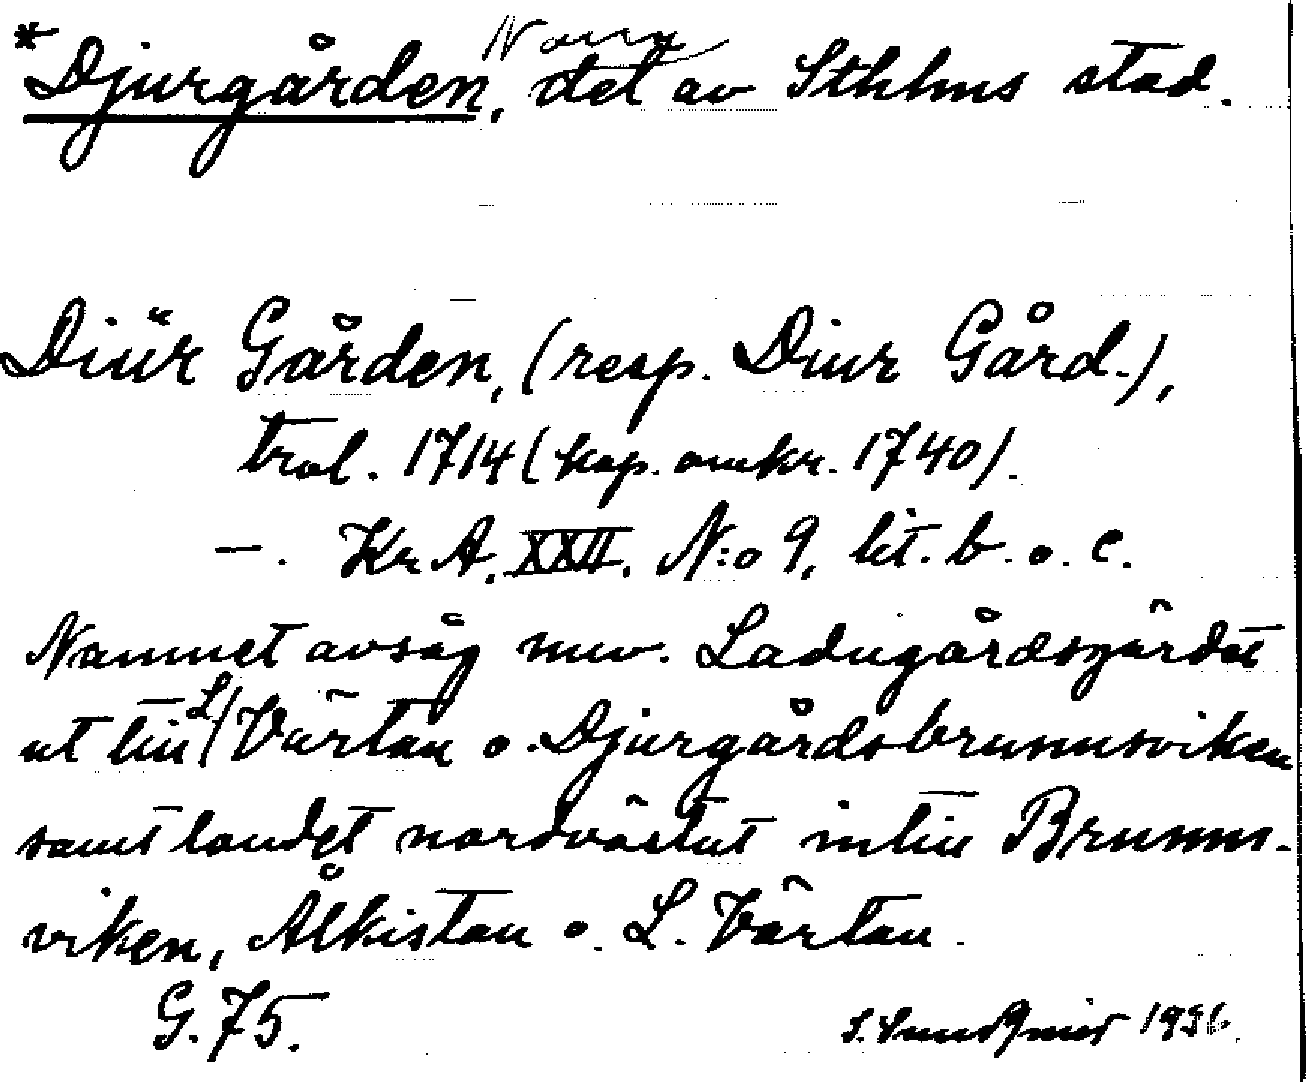 *Djurgården, Norra del av Sthlms stad.
Diür Gården, (resp. Diur Gård.),
trol. 1714 (kop. omkr. 1740).
—. Kr.A. XXII. N:o 9, lit. b. o. c.
Namnet avsåg nuv. Ladugårdsgärdet
ut till L/Värtan o. Djurgårdsbrunnsviken
samt landet nordvästut intill Brunns-
viken, Ålkistan o. L. Värtan.
G. 75.
S. 1936.